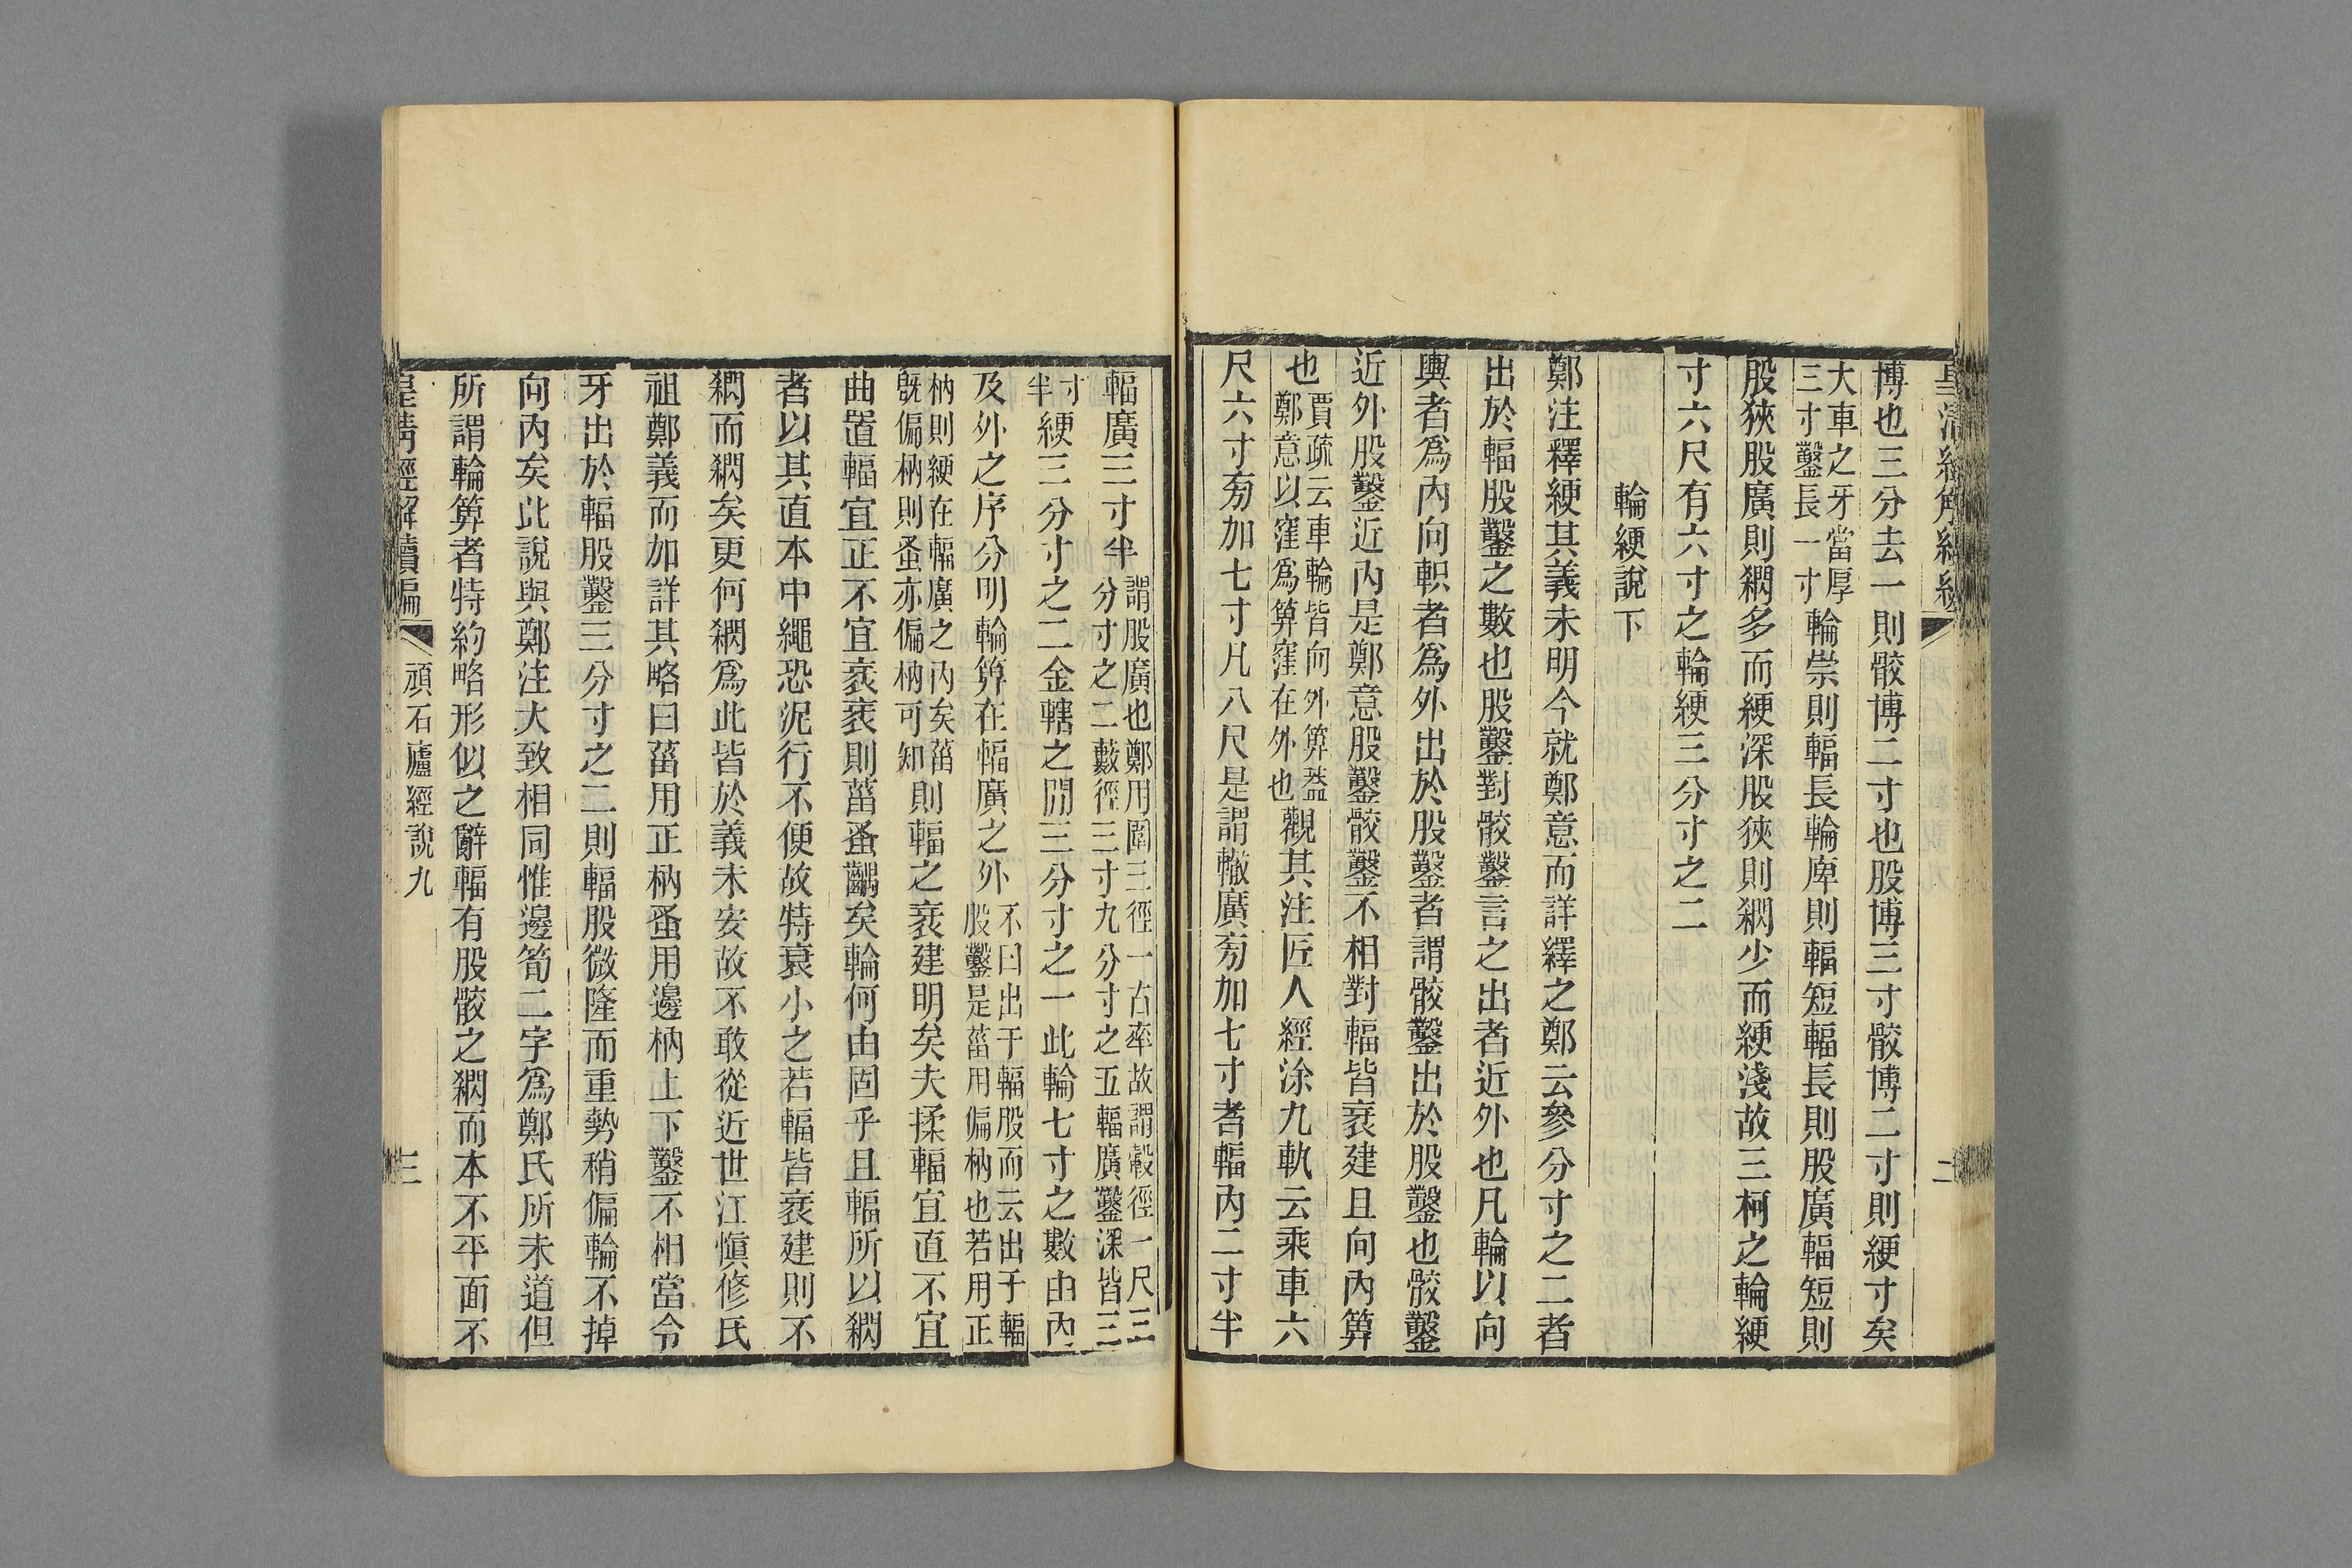 博也三分去一則骹博二寸也股博三寸骹博二寸則綆寸矣
大車之牙當厚
三寸鑿長一寸
輪崇則輻長輪庳則輻短輻長則股廣輻短則
股狹股廣則䦼多而綆深股狹則䦼少而綆淺故三柯之輪綆
寸六尺有六寸之輪綆三分寸之二
輪綆說下
鄭注釋綆其義未明今就鄭意而詳繹之鄭云參分寸之二者
出於輻股鑿之數也股鑿對骹鑿言之出者近外也凡輪以向
輿者爲內向軹者爲外出於股鑿者謂骹鑿出於股鑿也骹鑿
近外股鑿近內是鄭意股鑿骹鑿不相對輻皆衺建且向內箅
也
賈疏云車輪皆向外箅葢
鄭意以窪爲箅窪在外也
觀其注匠人經涂九軌云乘車六
尺六寸旁加七寸凡八尺是謂轍廣旁加七寸者輻內二寸半
輻廣三寸半
謂股廣也鄭用圍三徑一古率故謂轂徑一尺三
分寸之二藪徑三寸九分寸之五輻廣鑿深皆三
寸
半
綆三分寸之二金轄之閒三分寸之一此輪七寸之數由內
及外之序分明輪箅在輻廣之外
不曰出于輻股而云出于輻
股鑿是菑用偏枘也若用正
枘則綆在輻廣之內矣菑
旣偏枘則蚤亦偏枘可知
則輻之衺建明矣夫揉輻宜直不宜
曲置輻宜正不宜衺衺則菑蚤齵矣輪何由固乎且輻所以䦼
者以其直本中繩恐泥行不便故特衰小之若輻皆衺建則不
䦼而䦼矣更何䦼爲此皆於義未安故不敢從近世江愼修氏
祖鄭義而加詳其略曰菑用正枘蚤用邊枘上下鑿不相當令
牙出於輻股鑿三分寸之二則輻股微隆而重勢稍偏輪不掉
向內矣此說與鄭注大致相同惟邊筍二字爲鄭氏所未道但
所謂輪箅者特約略形似之辭輻有股骹之䦼而本不平面不
皇清經解續編
頑石廬經說九
三
二